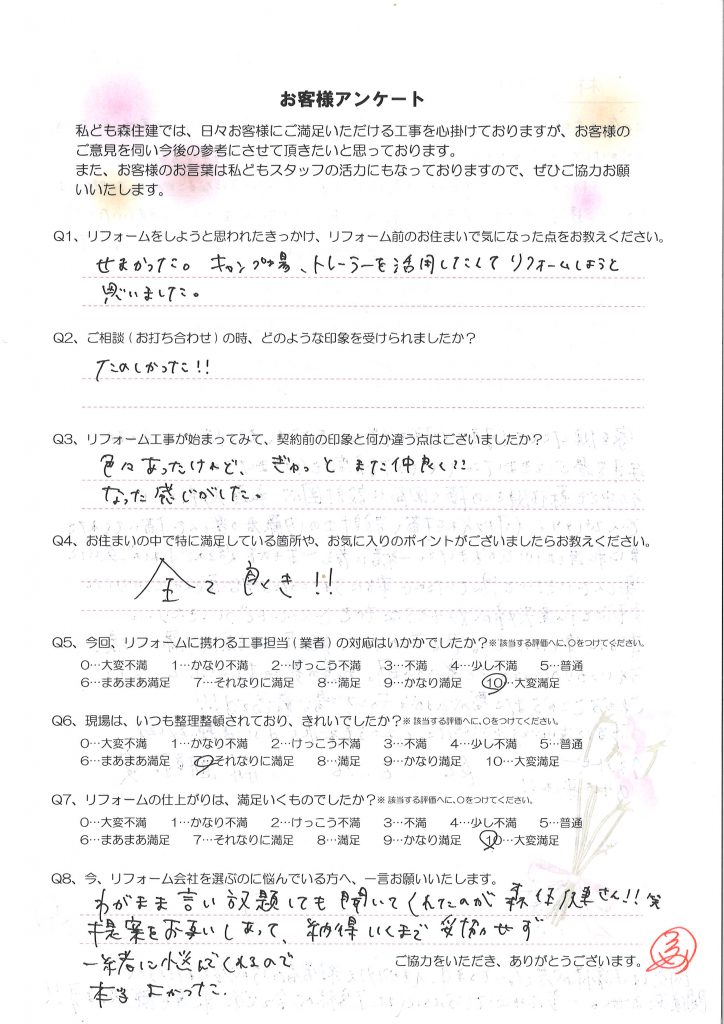 お客様アンケート
私ども森住建では、日々お客様にご満足いただける工事を心掛けておりますが、お客様の
ご意見を伺い今後の参考にさせて頂きたいと思っております。
また、お客様のお言葉は私どもスタッフの活力にもなっておりますので、ぜひご協力お願
いいたします。
Q1、リフォームをしようと思われたきっかけ、リフォーム前のお住まいで気になった点をお教えください。
せまかった。キャンプ場、トレーラーを活用したくてリフォームしようと
思いました。
Q2、ご相談(お打ち合わせ)の時、どのような印象を受けられましたか?
たのしかった!!
Q3、リフォーム工事が始まってみて、契約前の印象と何か違う点はございましたか?
色々あったけれど、ぎゅっとまた仲良く!!
なった感じがした。
Q4、お住まいの中で特に満足している箇所や、お気に入りのポイントがございましたらお教えください。
全て良き!!
Q5、今回、リフォームに携わる工事担当(業者)の対応はいかかでしたか?※該当する評価へに、〇をつけてください。
0…大変不満 1…かなり不満 2…けっこう不満 3…不満 4…少し不満 5…普通
6…まあまあ満足 7…それなりに満足 8…満足 9…かなり満足 10…大変満足
Q6、現場は、いつも整理整頓されており、きれいでしたか?※該当する評価へに、〇をつけてください。
0…大変不満 1…かなり不満 2…けっこう不満 3…不満 4…少し不満 5…普通
6…まあまあ満足 7…それなりに満足 8…満足 9…かなり満足 10…大変満足
Q7、リフォームの仕上がりは、満足いくものでしたか?※該当する評価へに、〇をつけてください。
0…大変不満 1…かなり不満 2…けっこう不満 3…不満 4…少し不満 5…普通
6…まあまあ満足 7…それなりに満足 8…満足 9…かなり満足 10…大変満足
Q8、今、リフォーム会社を選ぶのに悩んでいる方へ、一言お願いいたします。
わがまま言い放題しても聞いてくれたのが森住建さん!!笑
提案をお互いしあって、納得いくまで妥協せず
一緒に悩んでくれるので
本当よかった.
ご協力をいただき、ありがとうございます。